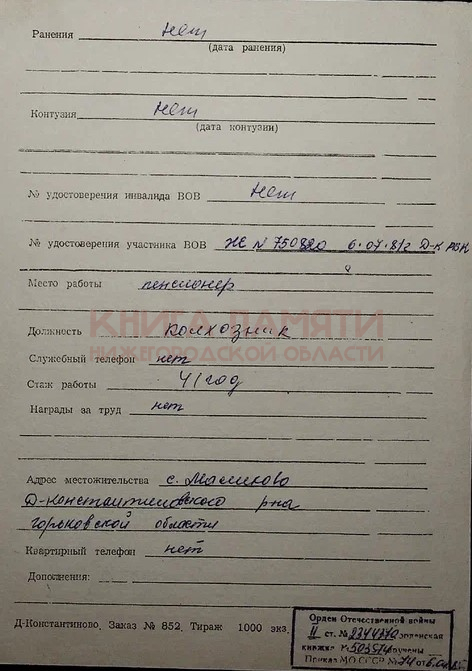 Ранения нет
(дата ранения)
Контузия нет
(дата контузии)
№ удостоверения инвалида ВОВ нет
№ удостоверения участника ВОВ ЖЕ N 750820 6.07.81г Д-К РВК
Место работы пенсионер
КНИГА ПАМЯТИ
Должность колхозник
НИЖЕГОРОДСКОЙ ОБЛАСТИ
Служебный телефон нет
Стаж работы 41 год
Награды за труд нет
Адрес местожительства с.
Д-Константиновского р-на
Горьковской области
Квартирный телефон нет
Дополнения:
Д-Константиново, Заказ № 852, Тираж 1000 экз.
Орден Отечественной войны
II ст. № орденская
книжка вручены
Приказ МО СССР №